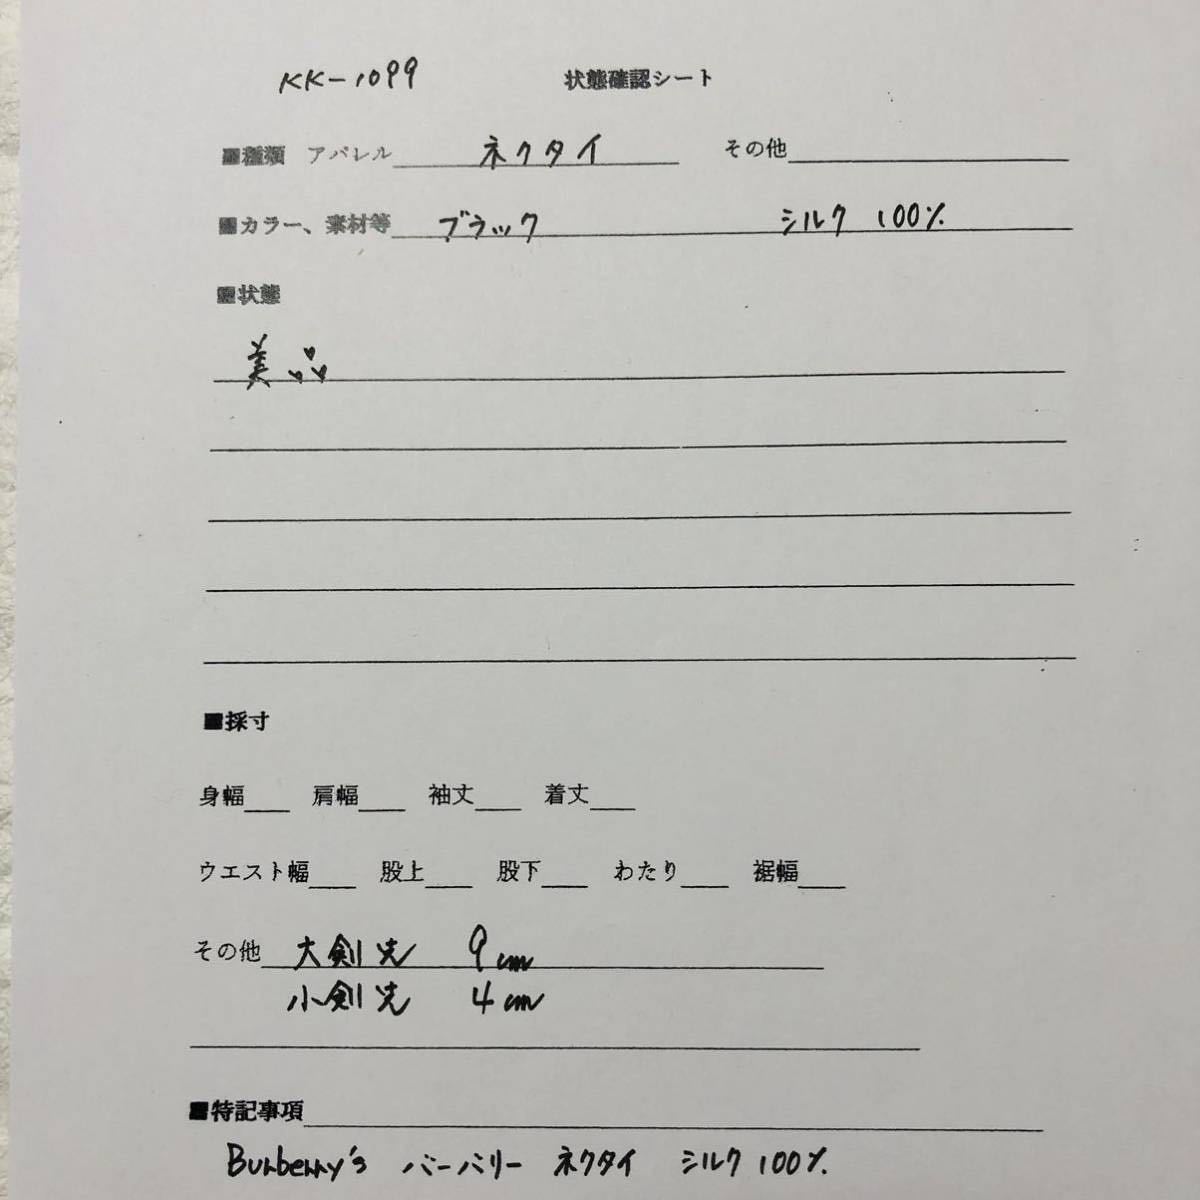 KK-1099 状態確認シート
■種類 アパレル ネクタイ その他
■カラー、素材等 ブラック シルク 100%
■状態
美品
■採寸
身幅 肩幅 袖丈 着丈
ウエスト幅 股上 股下 わたり 裾幅
その他 大剣先 9cm
小剣先 4cm
■特記事項
Burberry's バーバリー ネクタイ シルク 100%